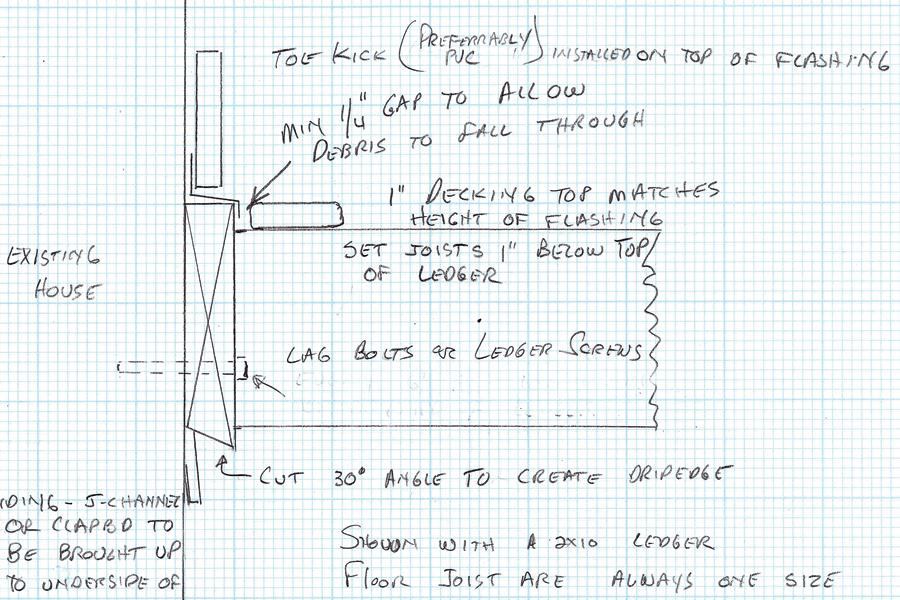 TOE KICK (PREFERRABLY PVC) INSTALLED ON TOP OF FLASHING
MIN 1/4" GAP TO ALLOW
DEBRIS TO FALL THROUGH
1" DECKING TOP MATCHES
HEIGHT OF FLASHING
SET JOISTS 1" BELOW TOP
OF LEDGER
EXISTING
HOUSE
LAG BOLTS OR LEDGER SCREWS
CUT 30° ANGLE TO CREATE DRIPEDGE
IDING - J-CHANNEL
OR CLAPBD TO
BE BROUGHT UP
TO UNDERSIDE OF
SHOWN WITH A 2X10 LEDGER
FLOOR JOIST ARE ALWAYS ONE SIZE